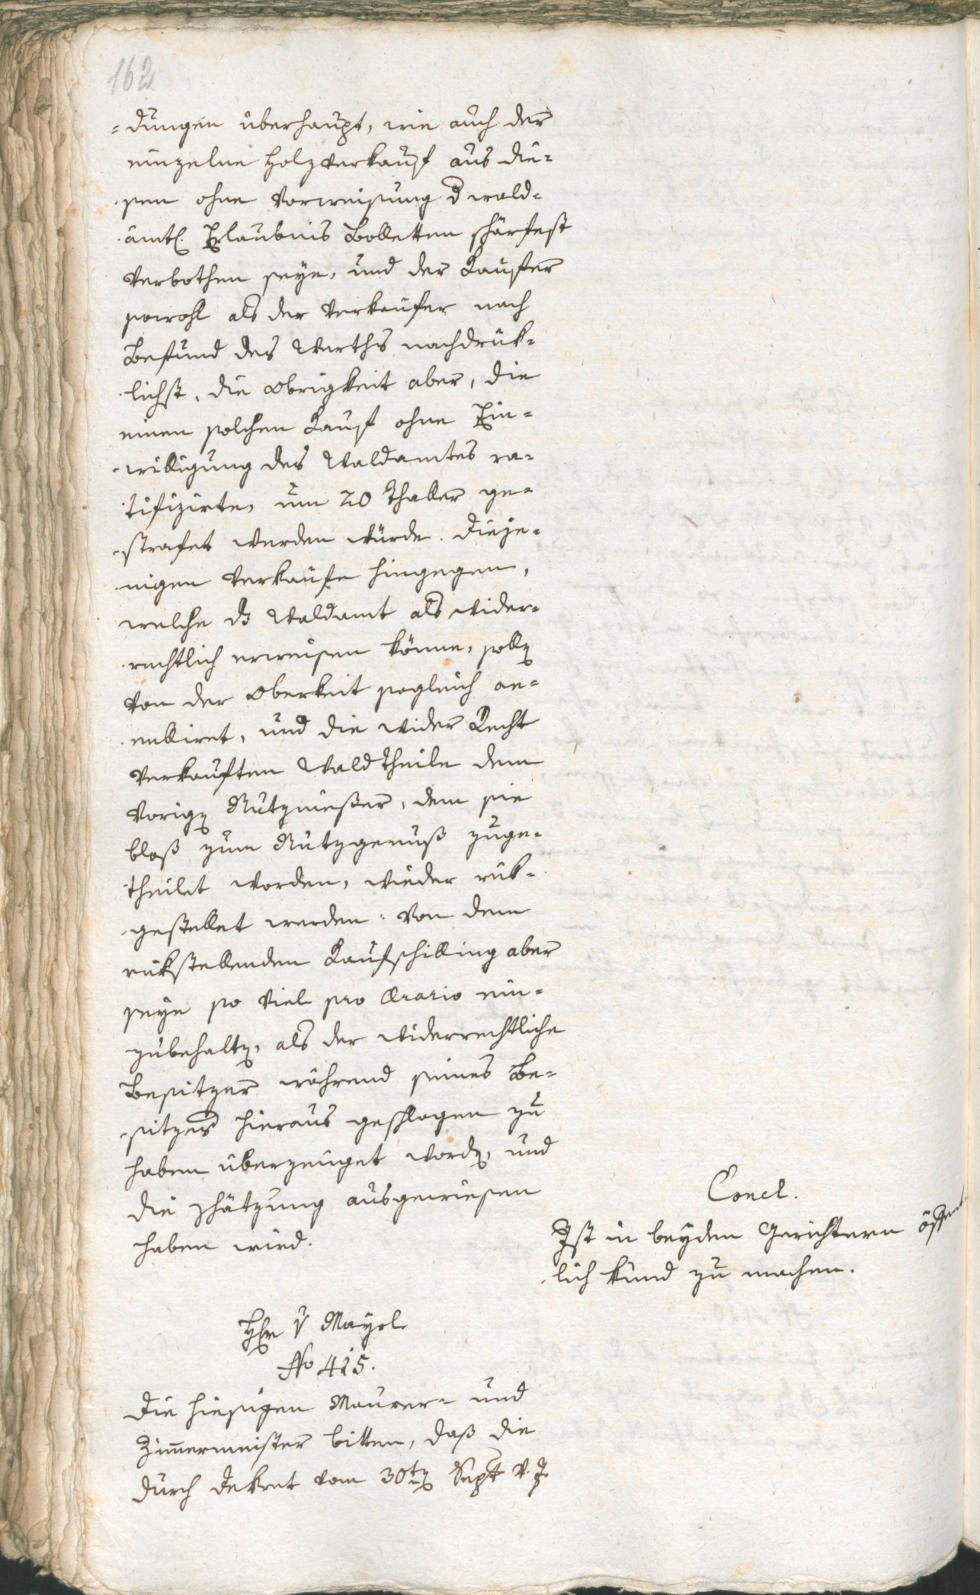 162
=dungen überhaupt, wie auch der
einzelne Holzverkauf aus die=
sen ohne Vorweisung d wald=
ämtl. Erlaubnis Bolletten schärfest
verbothen seye, und der Kaufer
sowohl als der Verkaufer nach
Befund des Werths nachdrük=
lichst, die Obrigkeit aber, die
einen solchen Kauf ohne Ein=
willigung des Waldamtes ra=
tifizirte, um 20 Thaller ge=
strafet werden würde. Dieje=
nigen Verkäufe hingegen,
welche dz Waldamt als wider=
rechtlich erweisen könne, solln
von der Oberkeit sogleich an=
nulliret, und die wider Recht
verkauften Waldtheile dem
vorign Nutzniesser, dem sie
bloß zum Nutzgenuß zuge=
theilet worden, wieder rük=
gestellet werden: Von dem
rükstellenden Kaufschilling aber
seye so viel pro Ærario ein=
zubehaltn, als der widerrechtliche
Besitzer während seines Be=
sitzes hieraus geschlagen zu
haben überzeuget wordn, und
die Schätzung ausgewiesen
haben wird.
Concl.
Ist in beyden Gerichtern öffent=
lich kund zu machen.
Hr v Mayrl
No 415.
Die hiesigen Maurer= und
Zimmermeister bitten, daß die
durch Dekret vom 30tn Sept v. J.